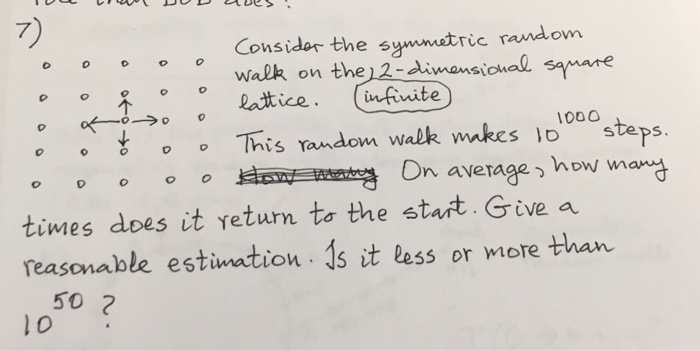 7)
Consider the symmetric random
walk on the, 2-dimensional square
lattice. infinite
This random walk makes 10^1000 steps.
How many On average, how many
times does it return to the start. Give a
reasonable estimation. Is it less or more than
10^50 ?